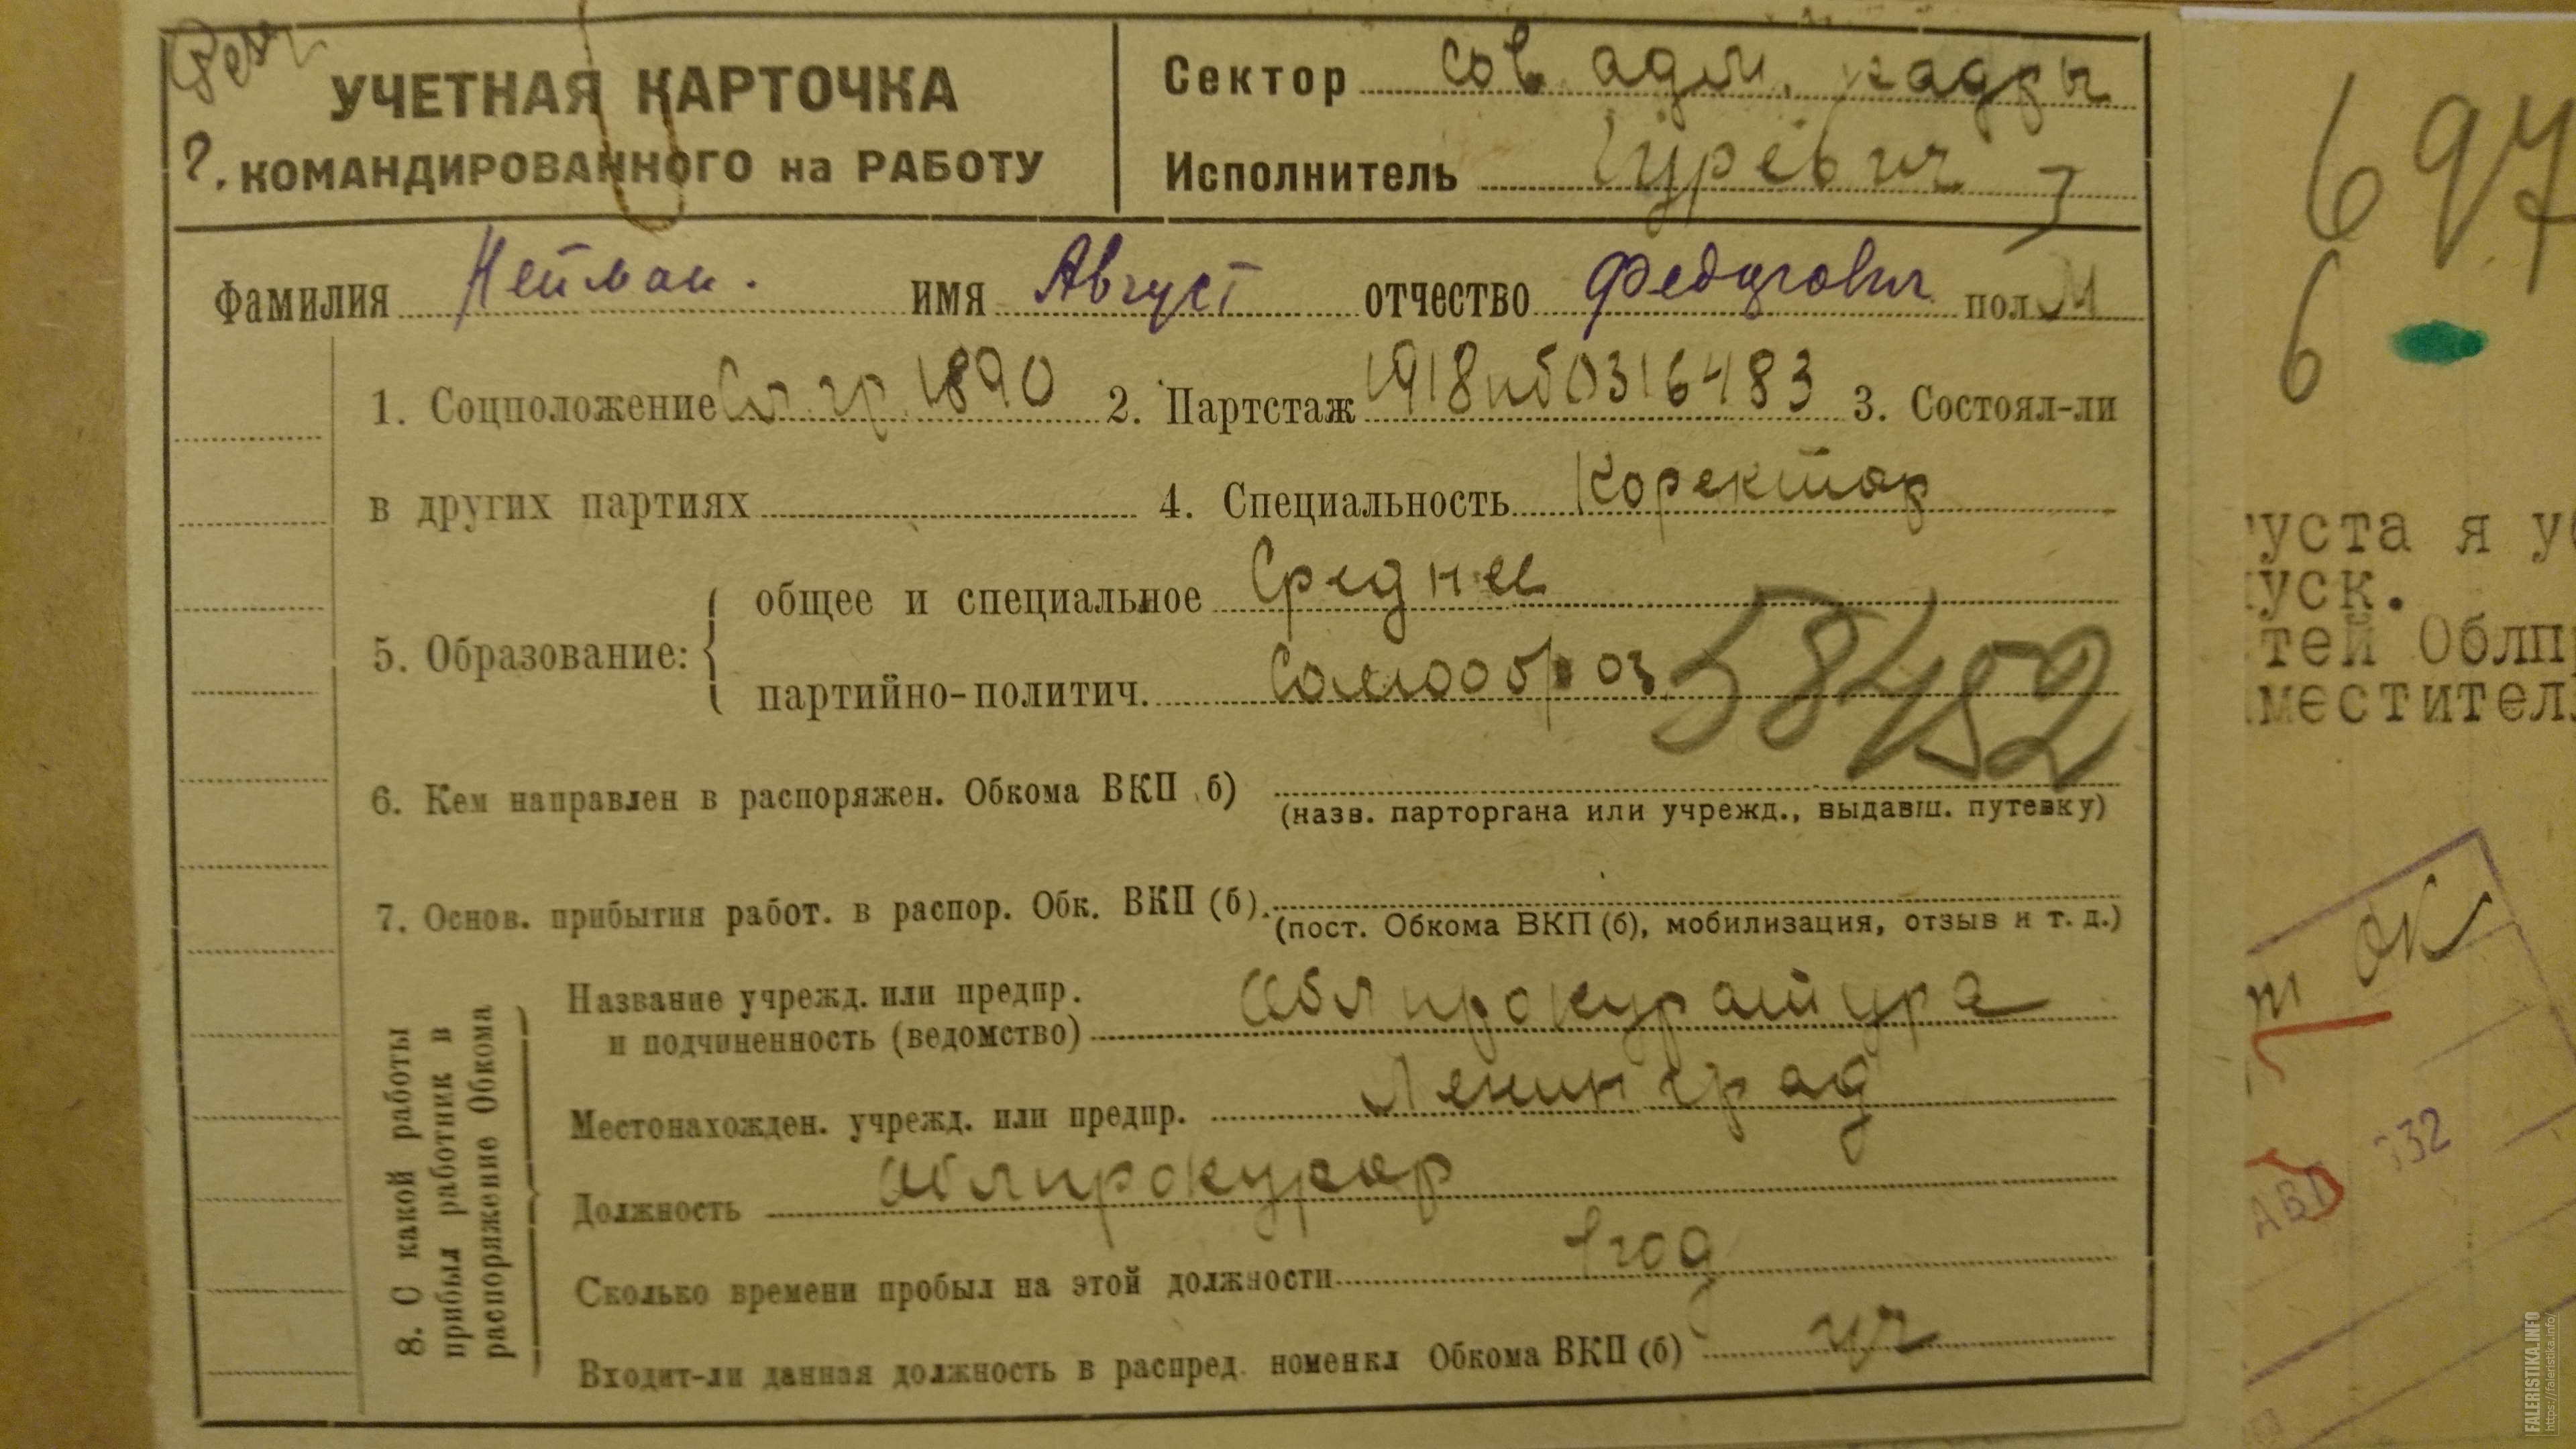 УЧЕТНАЯ КАРТОЧКА
?. КОМАНДИРОВАННОГО на РАБОТУ
Сектор сов адм. кадры
Исполнитель Гуревич
Фамилия Нейман. имя Август отчество Федорович пол М
1. Соцположение Сл. гр. 1890 2. Партстаж 1918 пб 0316483 3. Состоял-ли
в других партиях 4. Специальность Коректор
5. Образование:
общее и специальное Среднее
партийно-политич. Самообраз
58452
6. Кем направлен в распоряжен. Обкома ВКП б)
(назв. парторгана или учрежд., выдавш. путевку)
7. Основ. прибытия работ. в распор. Обк. ВКП (б).
(пост. Обкома ВКП (б), мобилизация, отзыв и т. д.)
8. С какой работы
прибыл работник в
распоряжение Обкома
Название учрежд. или предпр.
и подчиненность (ведомство) Облпрокуратура
Местонахожден. учрежд. или предпр. Ленинград
Должность Облпрокурор
Сколько времени пробыл на этой должности 1 год
Входит-ли данная должность в распред. номенкл Обкома ВКП (б)
697
6
густа я у
уск.
тей Облп
местител
ОК
АВГ 932
FALERISTIKA.INFO
https://faleristika.info/